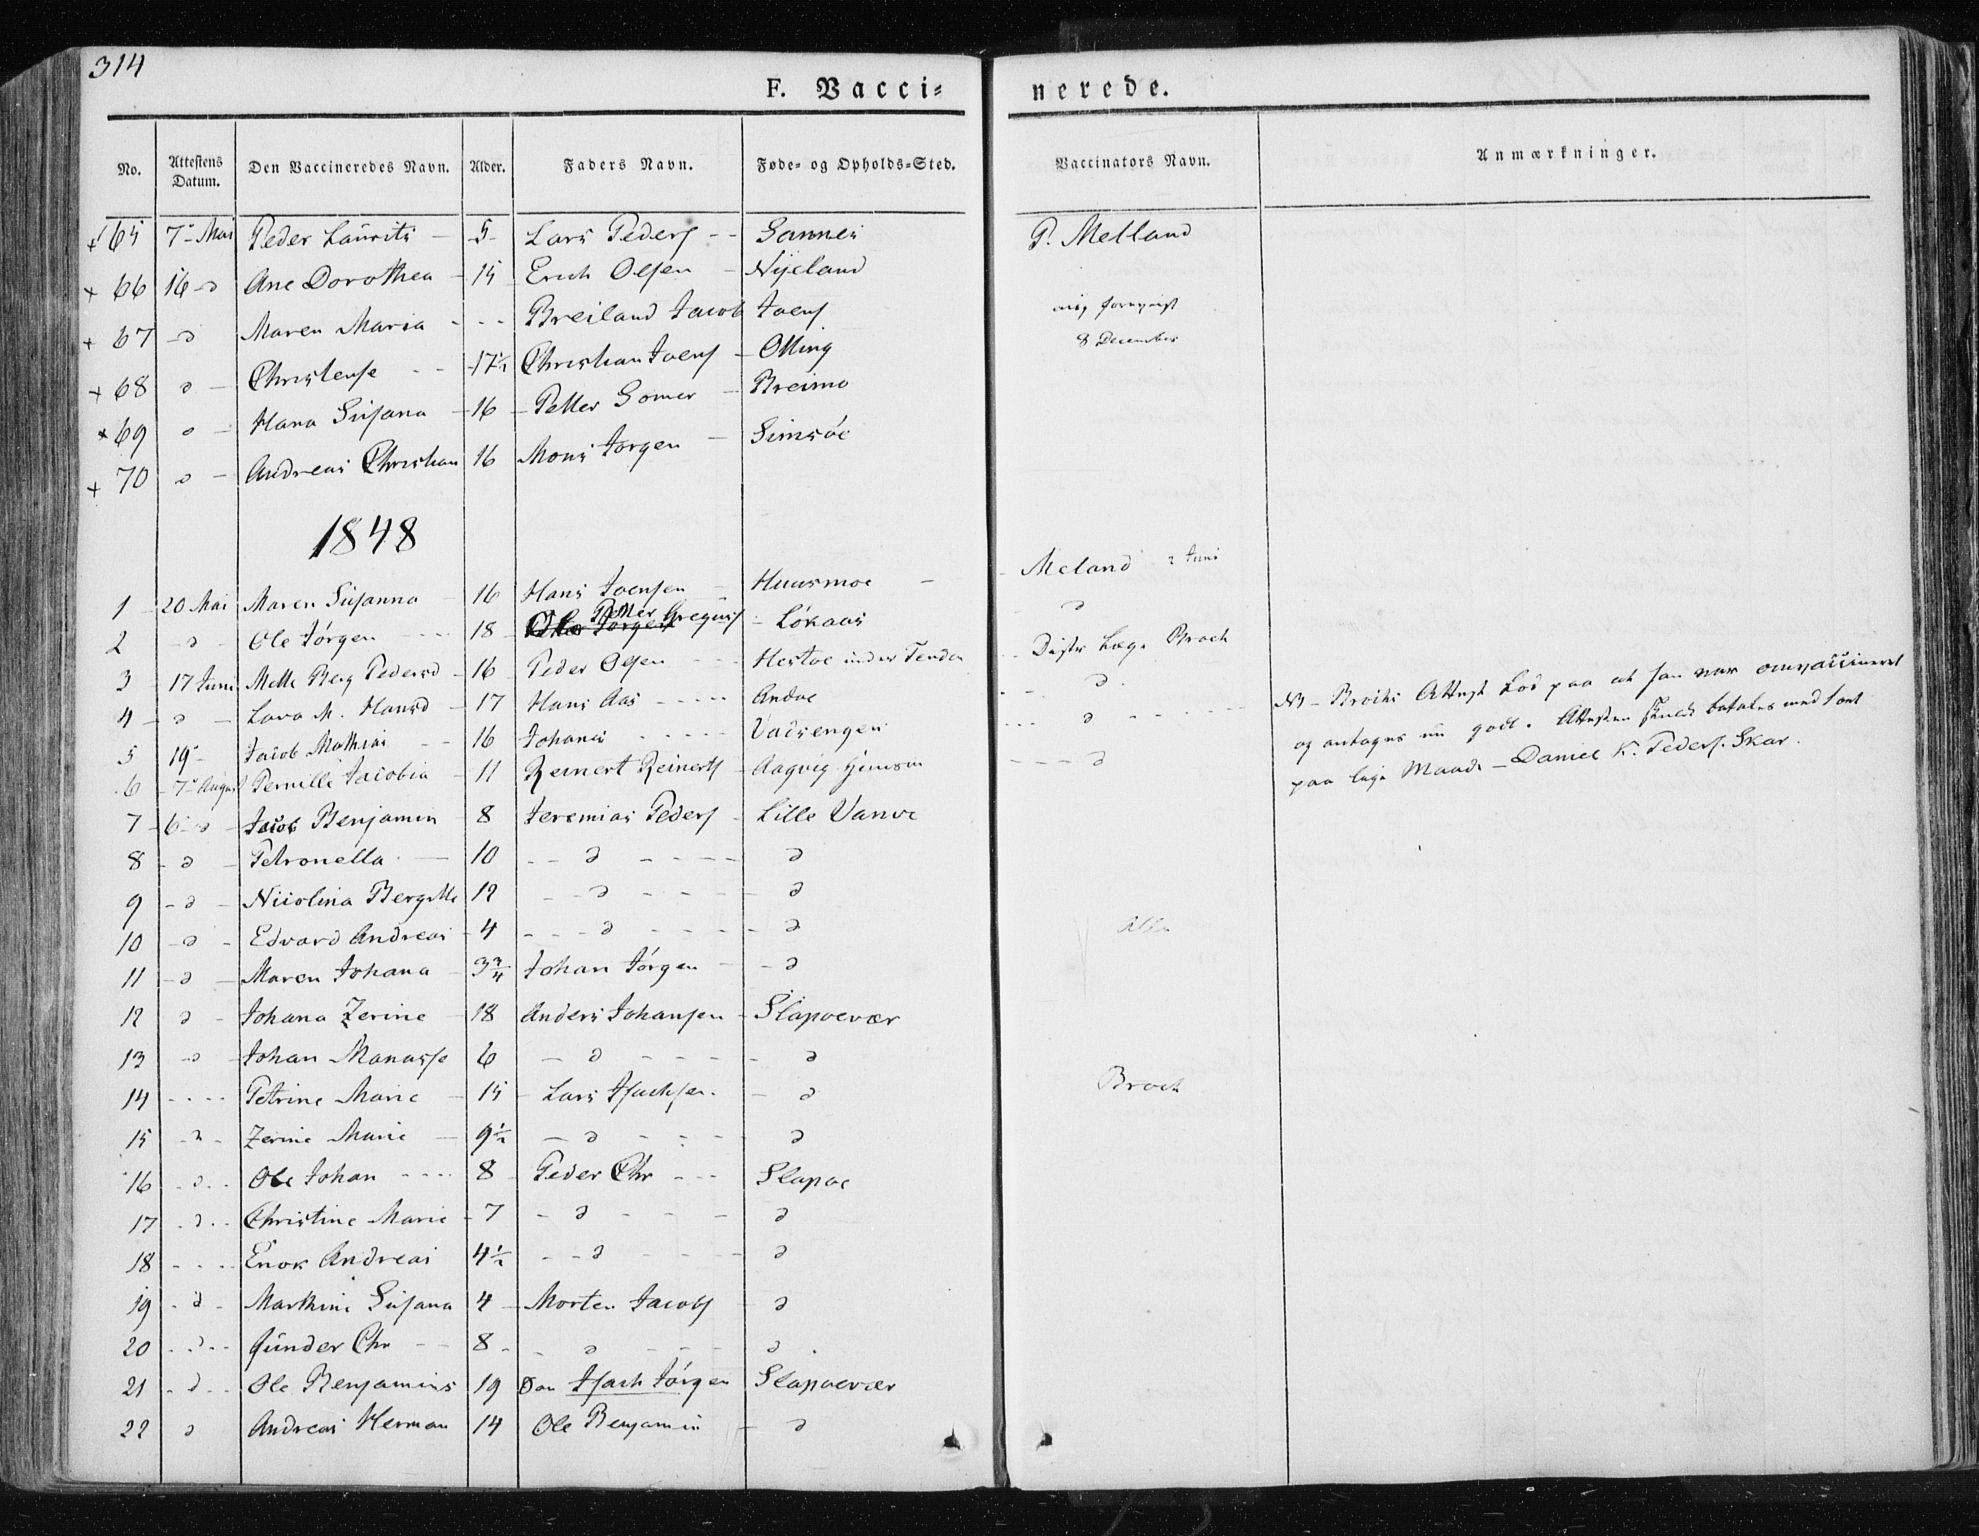 314
F. Vacci= nerede.
No. Attestens Datum. Den Vaccineredes Navn. Alder. Faders Navn. Føde= og Opholds=Sted. Vaccinators Navn. Anmærkninger.
+ 65 7 - Mai Peder Laurits - 5 - Lars Peders - - Sannes P. Melland
+ 66 16 - d Ane Dorothea - 15 Erich Olsen - Nyeland
+ 67 - d Maren Maria - - - Breiland Jacob Joens
+ 68 d - Christense - - 17½ Christian Joens - Olling 8 December
+ 69 d - Hana Susana - 16 - Petter Gomer - Breimo
+ 70 d - Andreas Christian 16 Mons Jørgen - Simsöe
1848
1 - 20 Mai Maren Susanna - 16 Hans Joensen - Huusmoe - Meland 2 Juni
2 - d - Ole Jörgen - - - 18 - Petter Gregus - Lökaas d
3 - 17 Juni Mette Berg Pedersd - 16 Peder Olsen - - - Hestoe under Tenden - - Distr Læge Broch
4 - d - Lava M. Hansd - 17 Hans Aas - - - - Andoe - - d
5 19 - Jacob Mathias - - 16 Johanes - - - - - Vadsengen - - - d - - - -
6 - 7 - August Pernille Jacobia - 11 Reinert Reinerts - Aagvig - - - - d
NB - Brochs Attest Lød paa at han var omvaccineret
og antages nu godt. Attesten skulde betales med 1 ort
paa lige Maade - Daniel K. Peders. Skar.
7 - 6 - d - Jacob Benjamin - 8 Jeremias Peders - Lille Vanve
8 - d - Petronella - 10 - - d - - - - d
9 - d - Nicolina Bergitte 12 - - d - - - - d
10 - d - Edvard Andreas - 4 - - - d - - - - d
11 - d - Maren Johana - 3¾ Johan Jörgen - - d
12 d - Johana Zerine - 18 Anders Johansen - Slapoevær
13 - d - Johan Manasse 6 - d - - - - - d
14 - - - - Petrine Marie - 15 - Lars Isachsen. - d Broch
15 - d - Zerine Marie - 9½ - d - - - - d
16 - d - - Ole Johan - - - - 8 - Peder Chr - - - Slapoe
17 - d - - Christine Marie - 7 - d - - - - d
18 - - - - Enok Andreas 4½ - - d - - - - d
19 - d - Marthine Susana 4 - Morten Jacobs - d
20 - d - - Gunder Chr - - 8 - - d - - - d
21 - d - - Ole Benjamins 19 Isach Jörgen Slapoevær
22 d Andreas Herman 14 Ole Benjamin - d